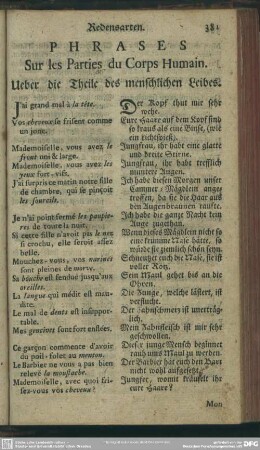 Redensarten. 381
PHRASES
Sur les Parties du Corps Humain.
Ueber die Theile des menschlichen Leibes.
J'ai grand mal à la tête.
Vos cheveux se frisent comme
un jonc.
Mademoiselle, vous avez le
front uni & large.
Mademoiselle, vous avez les
yeux fort, vifs.
J'ai surpris ce matin notre fille
de chambre, qui se pinçoit
les sourcils.
Je n'ai point fermé les paupie-
res de toute la nuit.
Si cette fille n'avoit pas le nez
si crochu, elle seroit assez
belle.
Mouchez-vous, vos narines
sont pleines de morve.
Sa bouche est fendue jusqu'aux
oreilles.
La langue qui médit est mau-
dite.
Le mal de dents est insuppor-
table.
Mes gencives sont fort enflées.
Ce garçon commence d'avoir
du poil-folet au menton.
Le Barbier ne vous a pas bien
relevé la moustache.
Mademoiselle, avec quoi fri-
sez-vous vos cheveux?
Der Kopf thut mir sehr
wehe.
Eure Haare auf dem Kopf sind
so kraus als eine Binse, (wie
ein
Jungfrau, ihr habt eine glatte
und breite Stirne.
Jungfrau, ihr habt trefflich
muntere Augen.
Ich habe diesen Morgen unser
Cammer-Mägdlein ange-
troffen, da sie die Haar aus
den Augenbraunen raufte.
Ich habe die ganze Nacht kein
Auge zugethan.
Wann dieses Mägdlein nicht so
eine krumme Nase hätte, so
würde sie ziemlich schön seyn.
Schneutzet euch die Nase, sie ist
voller Rotz.
Sein Maul gehet bis an die
Ohren.
Die Zunge, welche lästert, ist
verflucht.
Der Zahnschmerz ist unerträg-
lich.
Mein Zahnfleisch ist mir sehr
geschwollen.
Dieser junge Mensch beginnet
rauh ums Maul zu werden.
Der Barbier hat euch den Bart
nicht wohl aufgesetzt.
Jungfer, womit kräuselt ihr
eure Haare?
Man